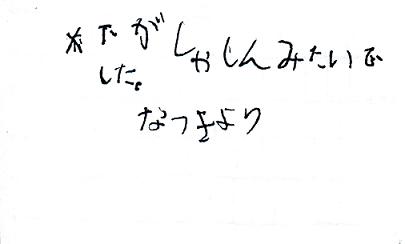 ※たがしゃしんみたいで
した。
なつきより